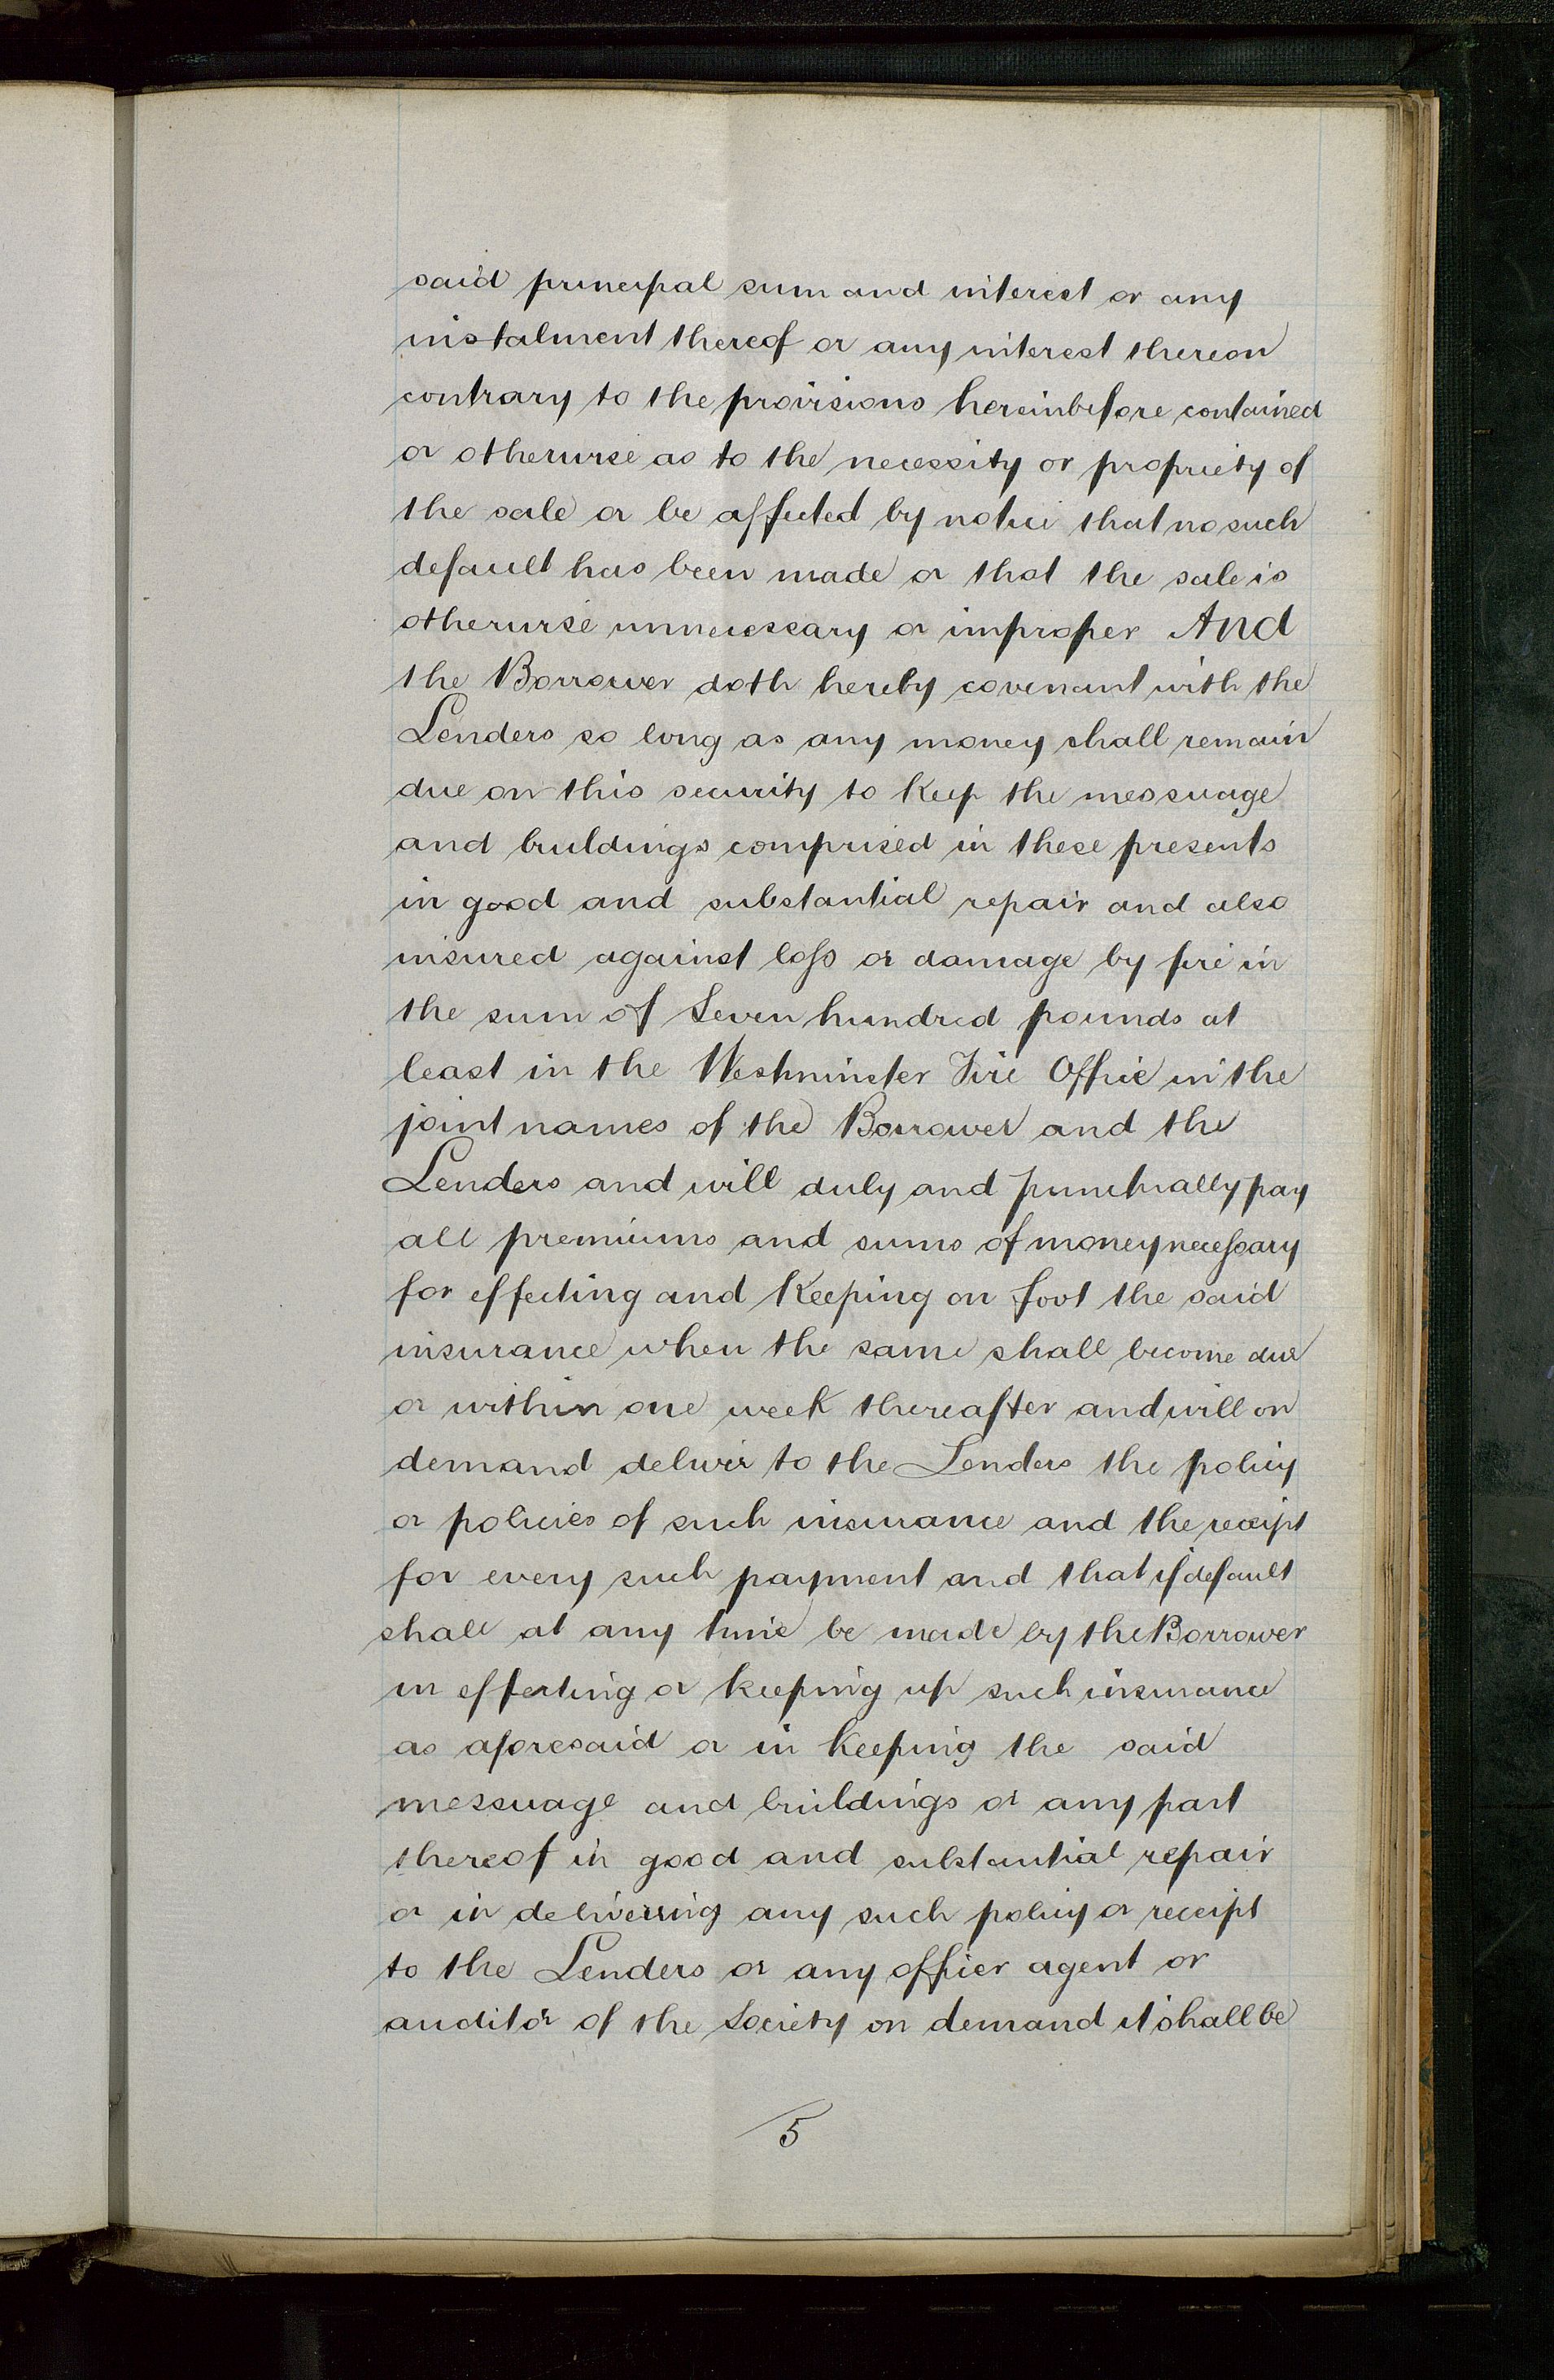 said principal sum and interest or any
instalment thereof or any interest thereon
contrary to the provisions hereinbefore contained
or otherwise as to the necessity or propriety of
the sale or be affected by notice that no such
default has been made or that the sale is
otherwise unnecessary or improper And
the Borrower doth hereby covenant with the
Lenders so long as any money shall remain
due on this security to keep the messuage
and buildings comprised in these presents
in good and substantial repair and also
insured against loss or damage by fire in
the sum of Seven hundred pounds at
least in the Westminster Fire Office in the
joint names of the Borrower and the
Lenders and will duly and punctually pay
all premiums and sums of money necessary
for effecting and keeping on foot the said
insurance when the same shall become due
or within one week thereafter and will on
demand deliver to the Lenders the policy
or policies of such insurance and the receipt
for every such payment and that if default
shall at any time be made by the Borrower
in effecting or keeping up such insurance
as aforesaid or in keeping the said
messuage and buildings or any part
thereof in good and substantial repair
or in delivering any such policy or receipt
to the Lenders or any officer agent or
auditor of the Society on demand it shall be
5